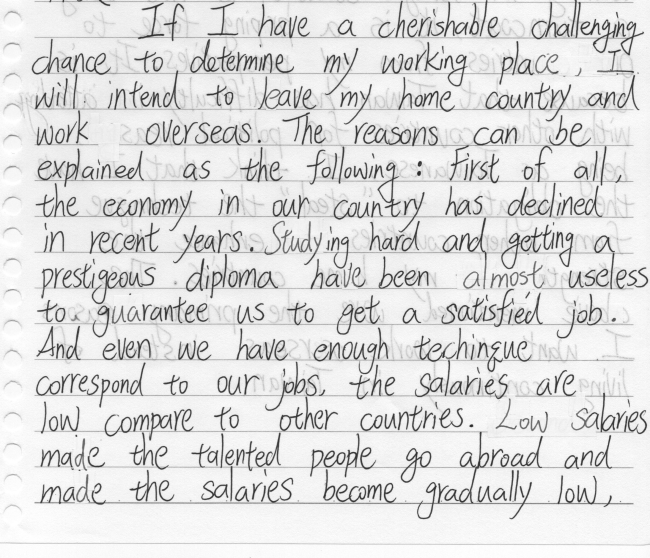 If I have a cherishable challenging
chance to determine my working place, I
will intend to leave my home country and
work overseas. The reasons can be
explained as the following: First of all,
the economy in our country has declined
in recent years. Studying hard and getting a
prestigeous diploma have been almost useless
to guarantee us to get a satisfied job.
And even we have enough techinque
correspond to our jobs, the salaries are
low compare to other countries. Low salaries
made the talented people go abroad and
made the salaries become gradually low,